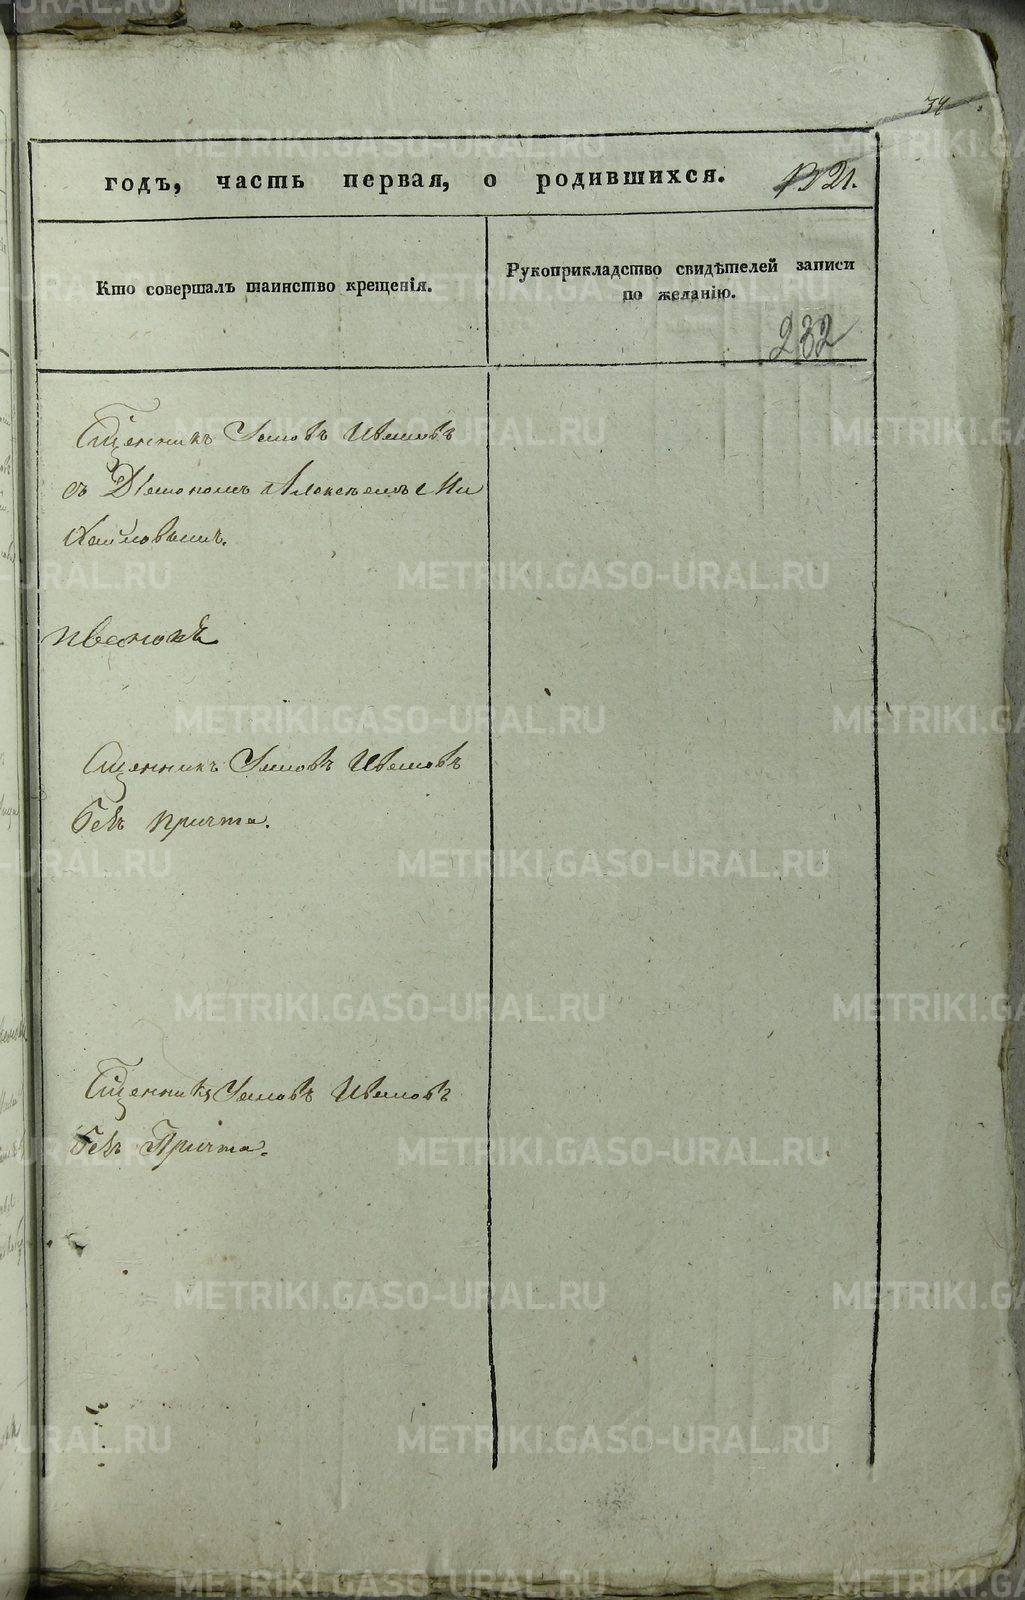 34
годъ, часть первая, о родившихся.
Кто совершалъ таинство крещенія.
Рукоприкладство свидѣтелей записи
по желанію.
232
Сщенникъ Іаковъ Ивановъ
съ Діакономъ Алексѣемъ Ми
хайловымъ.
Сщенникъ Іаковъ Ивановъ
безъ причта.
Сщенникъ Іаковъ Ивановъ
безъ Причта.
METRIKI.GASO-URAL.RU